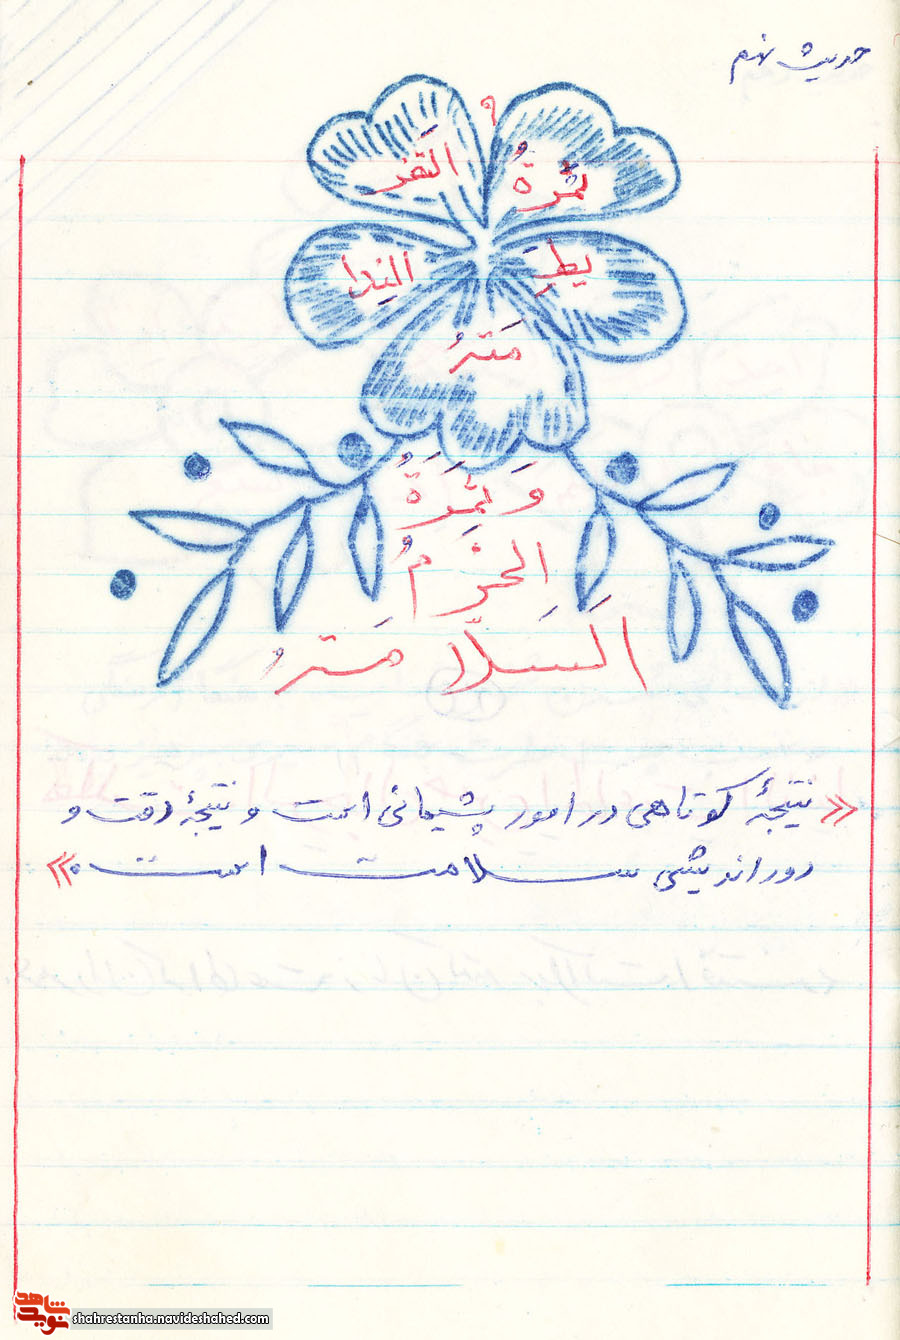 حدیث نهم
۹
ثمرةُ التَفر
یطرِ الندا
مَترُ
وَ ثَمَرَةُ
الحَزمُ
اَلسَلّامَترُ
«نتیجهٔ کوتاهی در امور پشیمانی است و نتیجهٔ دقت و
دوراندیشی سلامت است.»
شاهد نوید
shahrestanha.navideshahed.com